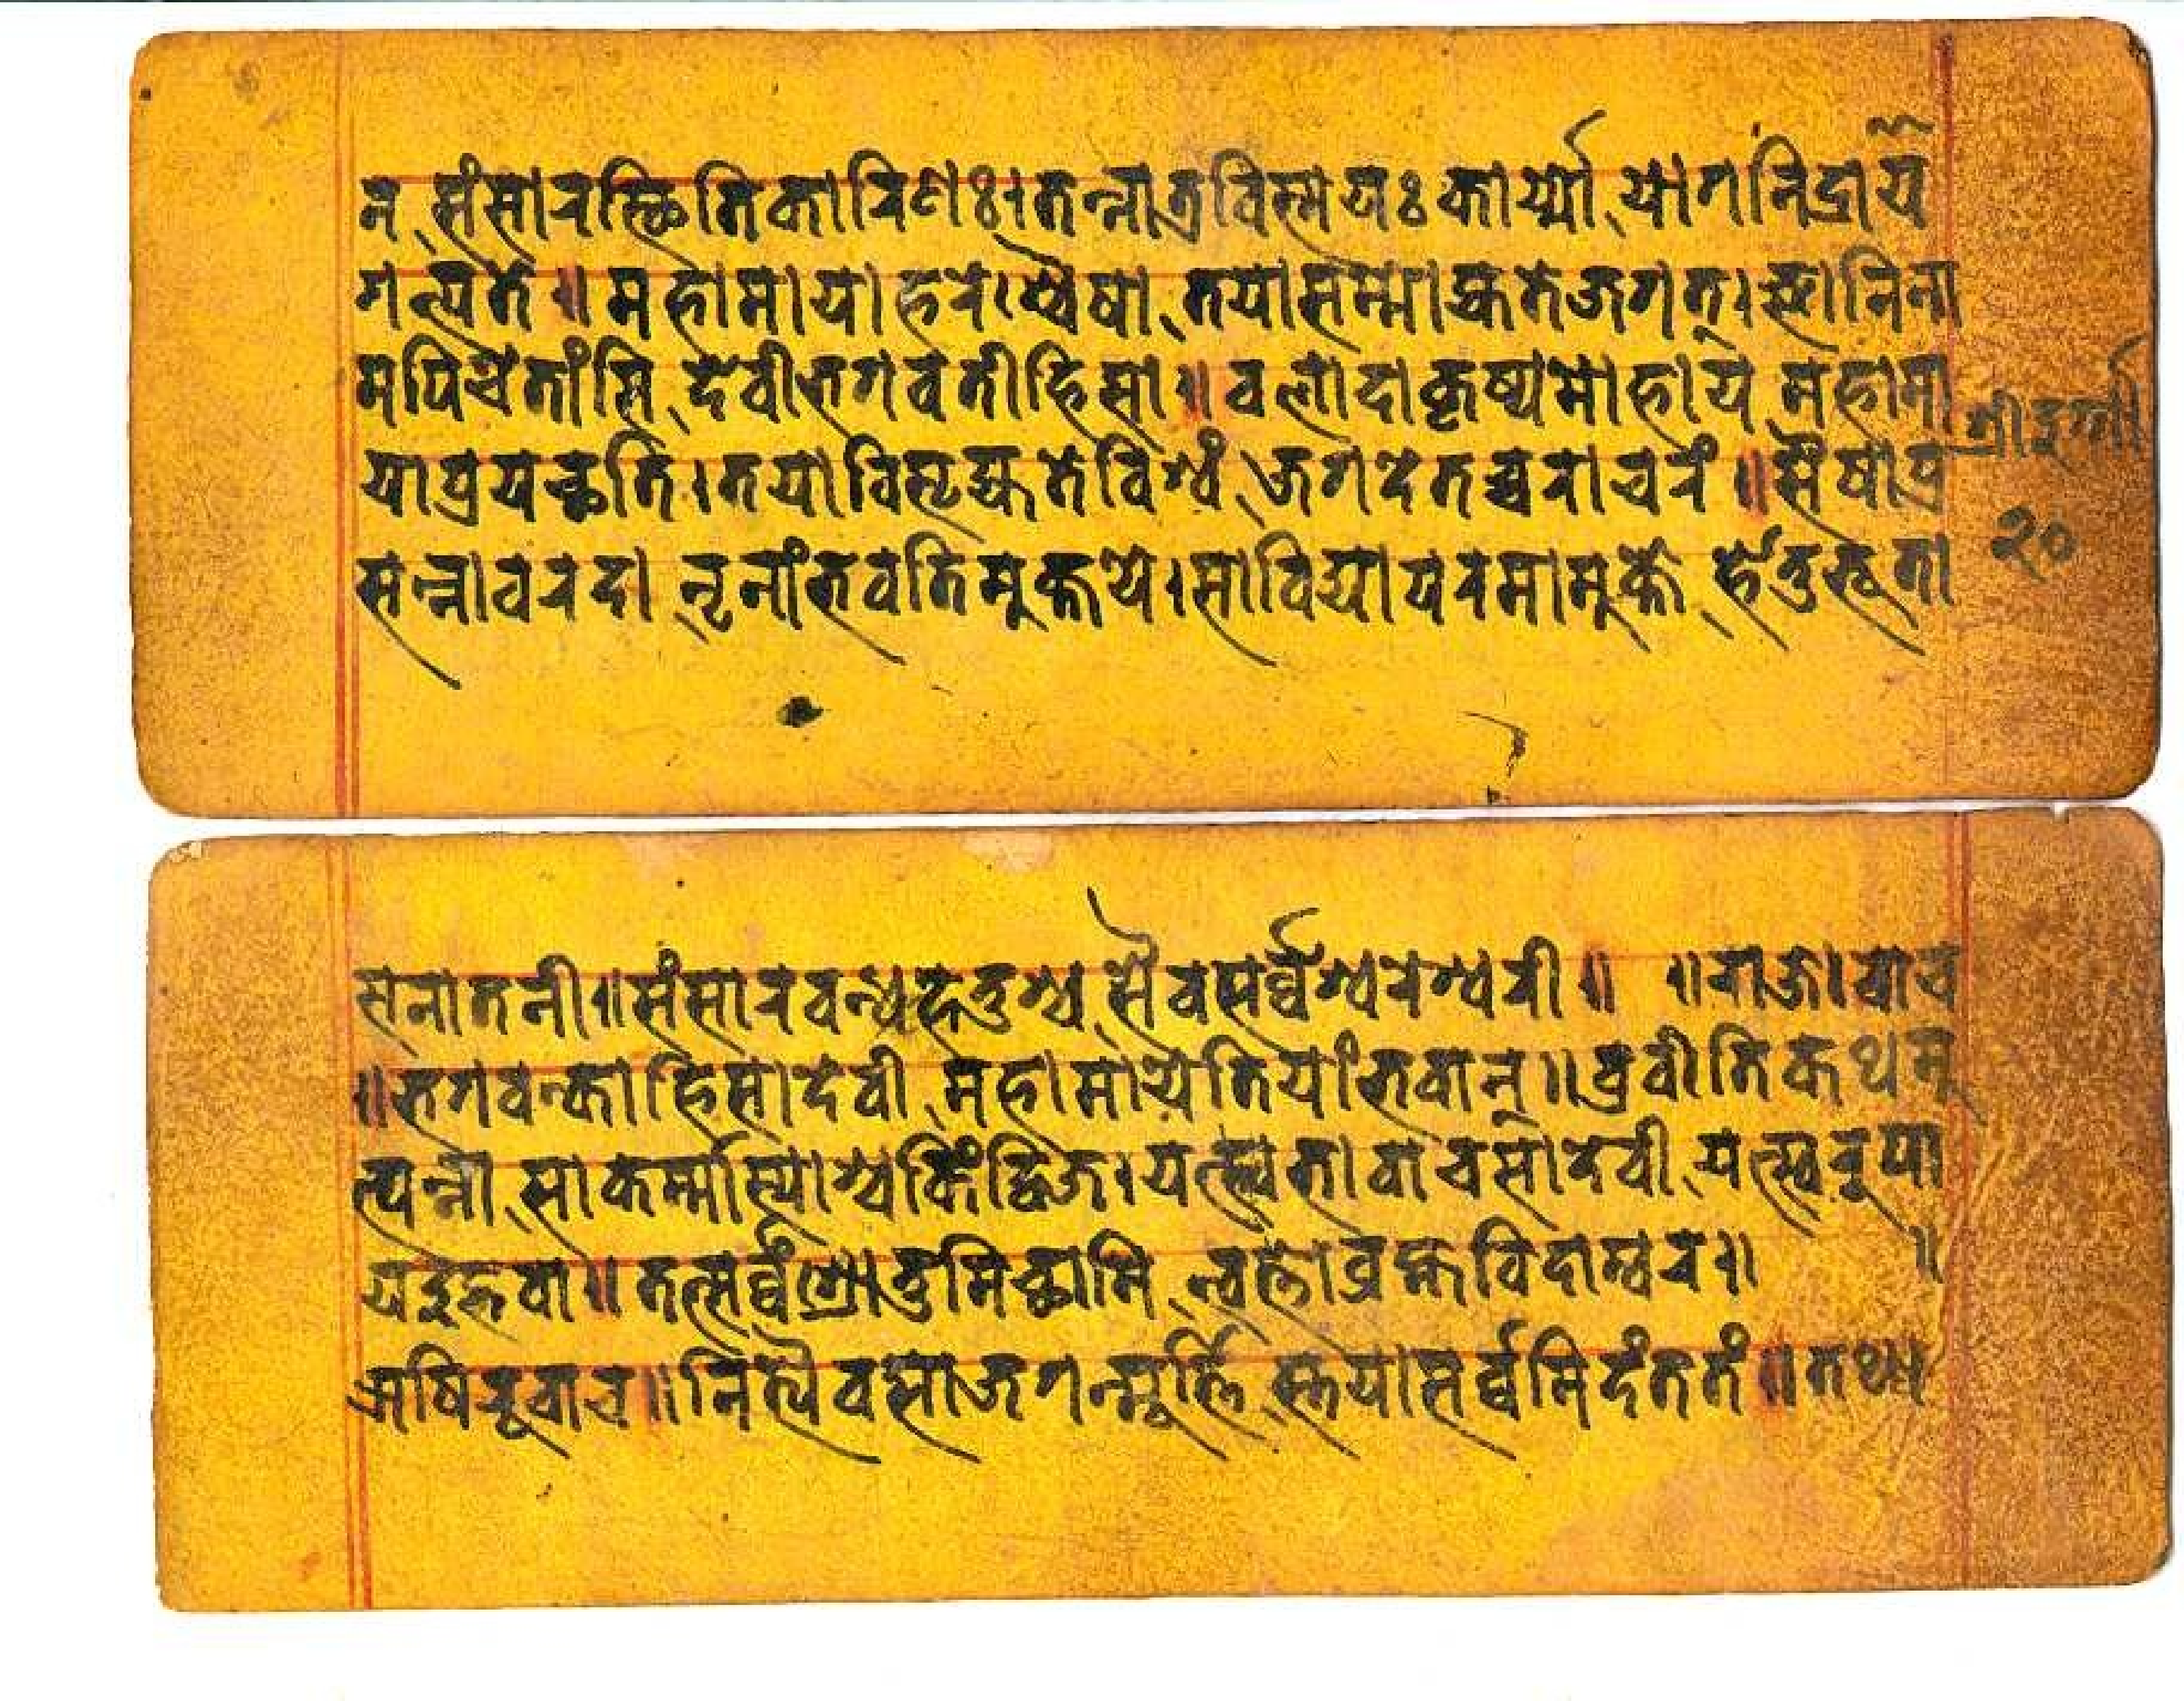 न संसारस्थितिकारिणः।तन्नात्रविस्मयः कार्य्यो योगनिद्राये
गत्पते॥महामायाहरेश्चैषा तयासम्मोह्यतेजगत्।ज्ञानिना
मपिचेतांसि देवीभगवतीहिसा॥वलादाकृष्यमोहाय महामा
श्रीदुर्गा
याप्रयच्छति।तयाविसृज्यतेविश्वं जगदेतच्चराचरं॥सैषाप्र
२०
सन्नावरदा नृनांभवतिमुक्तये।साविद्यापरमामुक्ते र्हेतुभूता
सनातनी॥संसारवन्धहेतुश्च सैवसर्व्वेश्वरेश्वरी॥ ॥राजोवाच
॥भगवन्काहिसादेवी महामायेतियांभवान्॥व्रवीतिकथमु
त्पन्ना साकर्म्मास्याश्चकिंद्विज।यत्स्वभावाचसादेवी यत्स्वरूपा
यदुद्भवा॥तत्सर्व्वंश्रोतुमिच्छामि त्वत्तोव्रह्मविदाम्वर॥ ॥
ऋषिरुवाच॥नित्यैवसाजगन्मूर्त्ति स्तयासर्व्वमिदंततं॥तथा